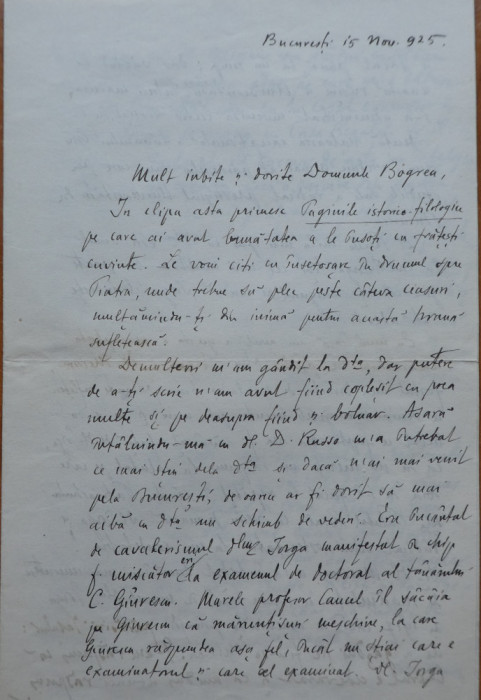 București 15 Nov. 925.
Mult iubite și dorite Domnule Bogrea,
In clipa asta primesc Paginile istorico-filologice
pe care ai avut bunătatea a le însoți cu frățești
cuvinte. Le voiu citi cu însetoșare în drumul spre
Piatra, unde trebue să plec peste câteva ceasuri,
mulțămindu-ți din inimă pentru această hrană
sufletească.
Demulteori m'am gândit la dta, dar putere
de a-ți scrie n'am avut fiind copleșit cu prea
multe și pe deasupra fiind și bolnav. Aseară
întâlnindu-mă cu dl. D. Russo m'a întrebat
ce mai știu dela dta și dacă n'ai mai venit
pela București, de oarece ar fi dorit să mai
aibă cu dta un schimb de vederi. Era încântat
de cavalerismul dlui Iorga manifestat în chip
f. mișcător eri la examenul de doctorat al tânărului
C. Giurescu. Marele profesor Cancel îl sâcâia
pe Giurescu cu mărunțișuri meschine, la care
Giurescu răspundea așa fel, încât nu știai care e
examinatorul și care cel examinat. Dl. Iorga